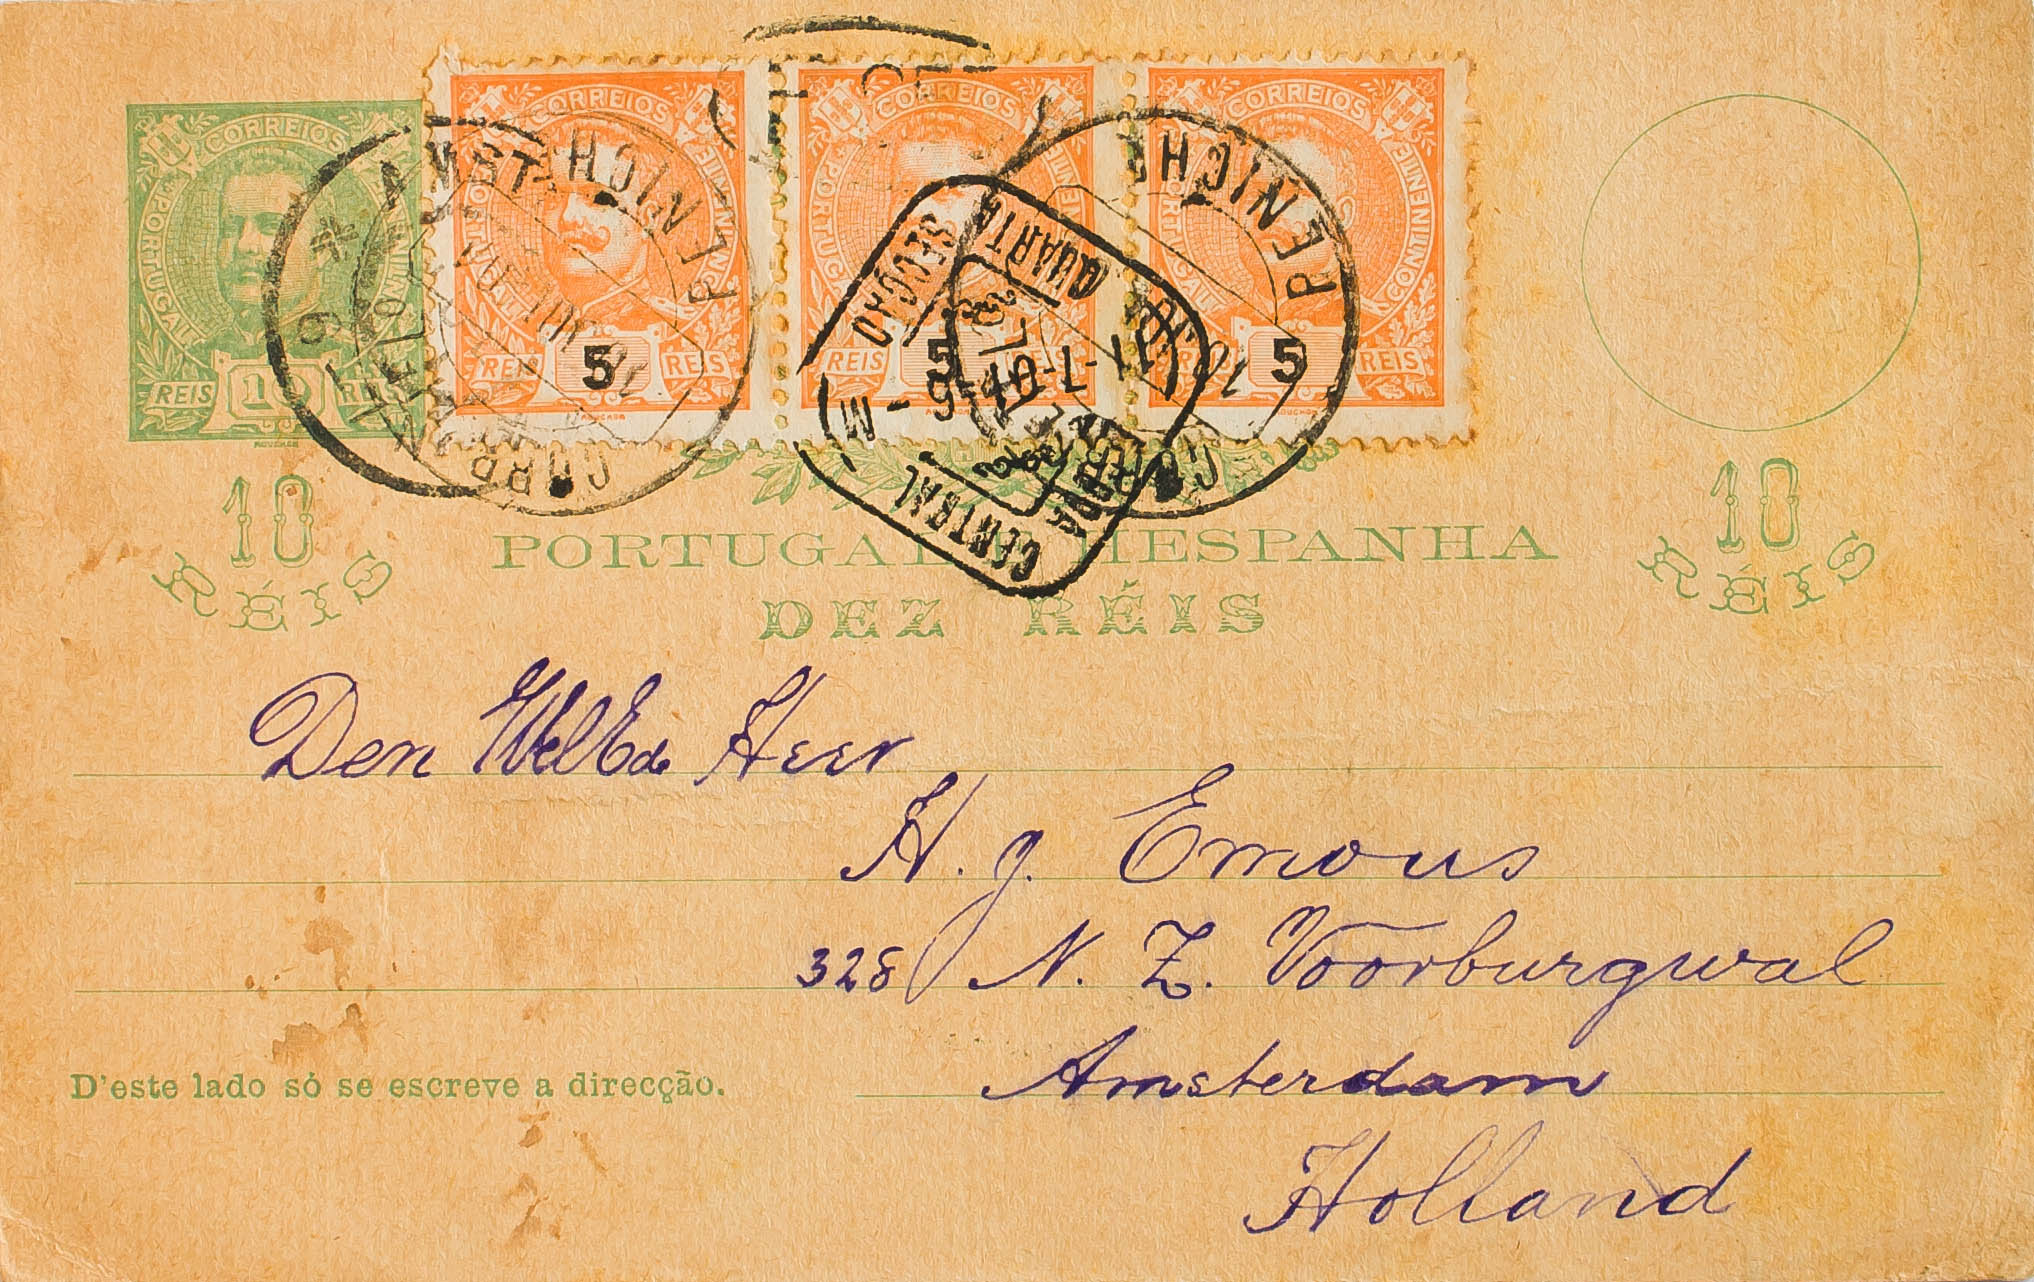 CORREIOS
PORTUGAL
REIS 10 REIS
CORREIOS
CONTINENTE
5
REIS
CORREIOS
CONTINENTE
PORTUGAL
REIS 5 REIS
CORREIOS
CONTINENTE
5 REIS
AMST
PENICHE
PENICHE
SECCÃO
QUARTA
CENTRAL
10 RÉIS
10 RÉIS
PORTUGAL HESPANHA
DEZ RÉIS
Den WelEde Heer
H. J. Emous
328 N. Z. Voorburgwal
Amsterdam
Holland
D'este lado só se escreve a direcção.